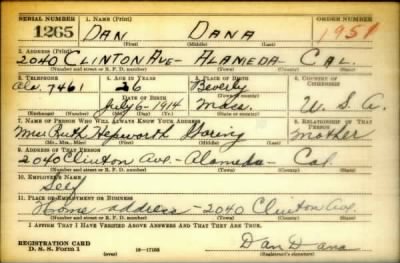 SERIAL NUMBER 1. NAME (Print) ORDER NUMBER
1265 DAN DANA 1951
(First) (Middle) (Last)
2. ADDRESS (Print)
2040 CLINTON AVE - ALAMEDA - CAL.
(Number and street or R. F. D. number) (Town) (County) (State)
3. TELEPHONE 4. AGE IN YEARS 5. PLACE OF BIRTH 6. COUNTRY OF CITIZENSHIP
Ala. 7461 26 Beverly
DATE OF BIRTH
July 6 - 1914 Mass. U. S. A.
(Exchange) (Number) (Mo.) (Day) (Yr.) (State or country)
7. NAME OF PERSON WHO WILL ALWAYS KNOW YOUR ADDRESS 8. RELATIONSHIP OF THAT PERSON
Mrs Ruth Hepworth Mother
(Mr., Mrs., Miss) (First) (Middle) (Last)
9. ADDRESS OF THAT PERSON
2040 Clinton Ave. - Alameda - Cal
(Number and street or R. F. D. number) (Town) (County) (State)
10. EMPLOYER'S NAME
Self
11. PLACE OF EMPLOYMENT OR BUSINESS
Home address - 2040 Clinton Ave.
(Number and street or R. F. D. number) (Town) (County) (State)
I AFFIRM THAT I HAVE VERIFIED ABOVE ANSWERS AND THAT THEY ARE TRUE.
REGISTRATION CARD
D. S. S. Form 1 16-17105 Dan Dana
(Registrant's signature)